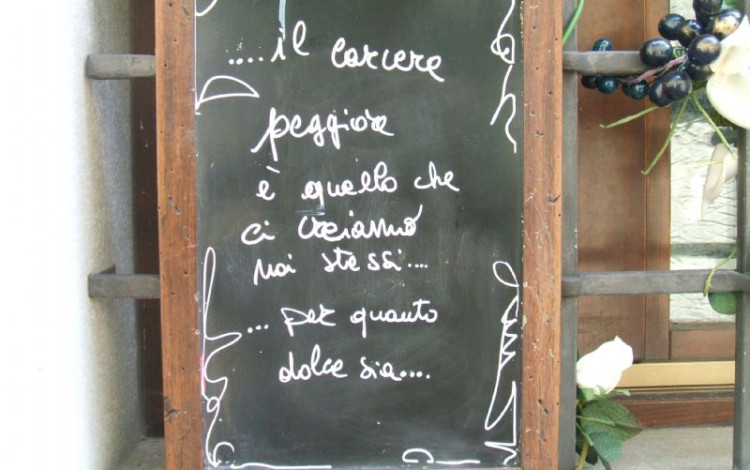 ....il carcere
peggiore
è quello che
ci creiamo
noi stessi....
... per quanto
dolce sia....